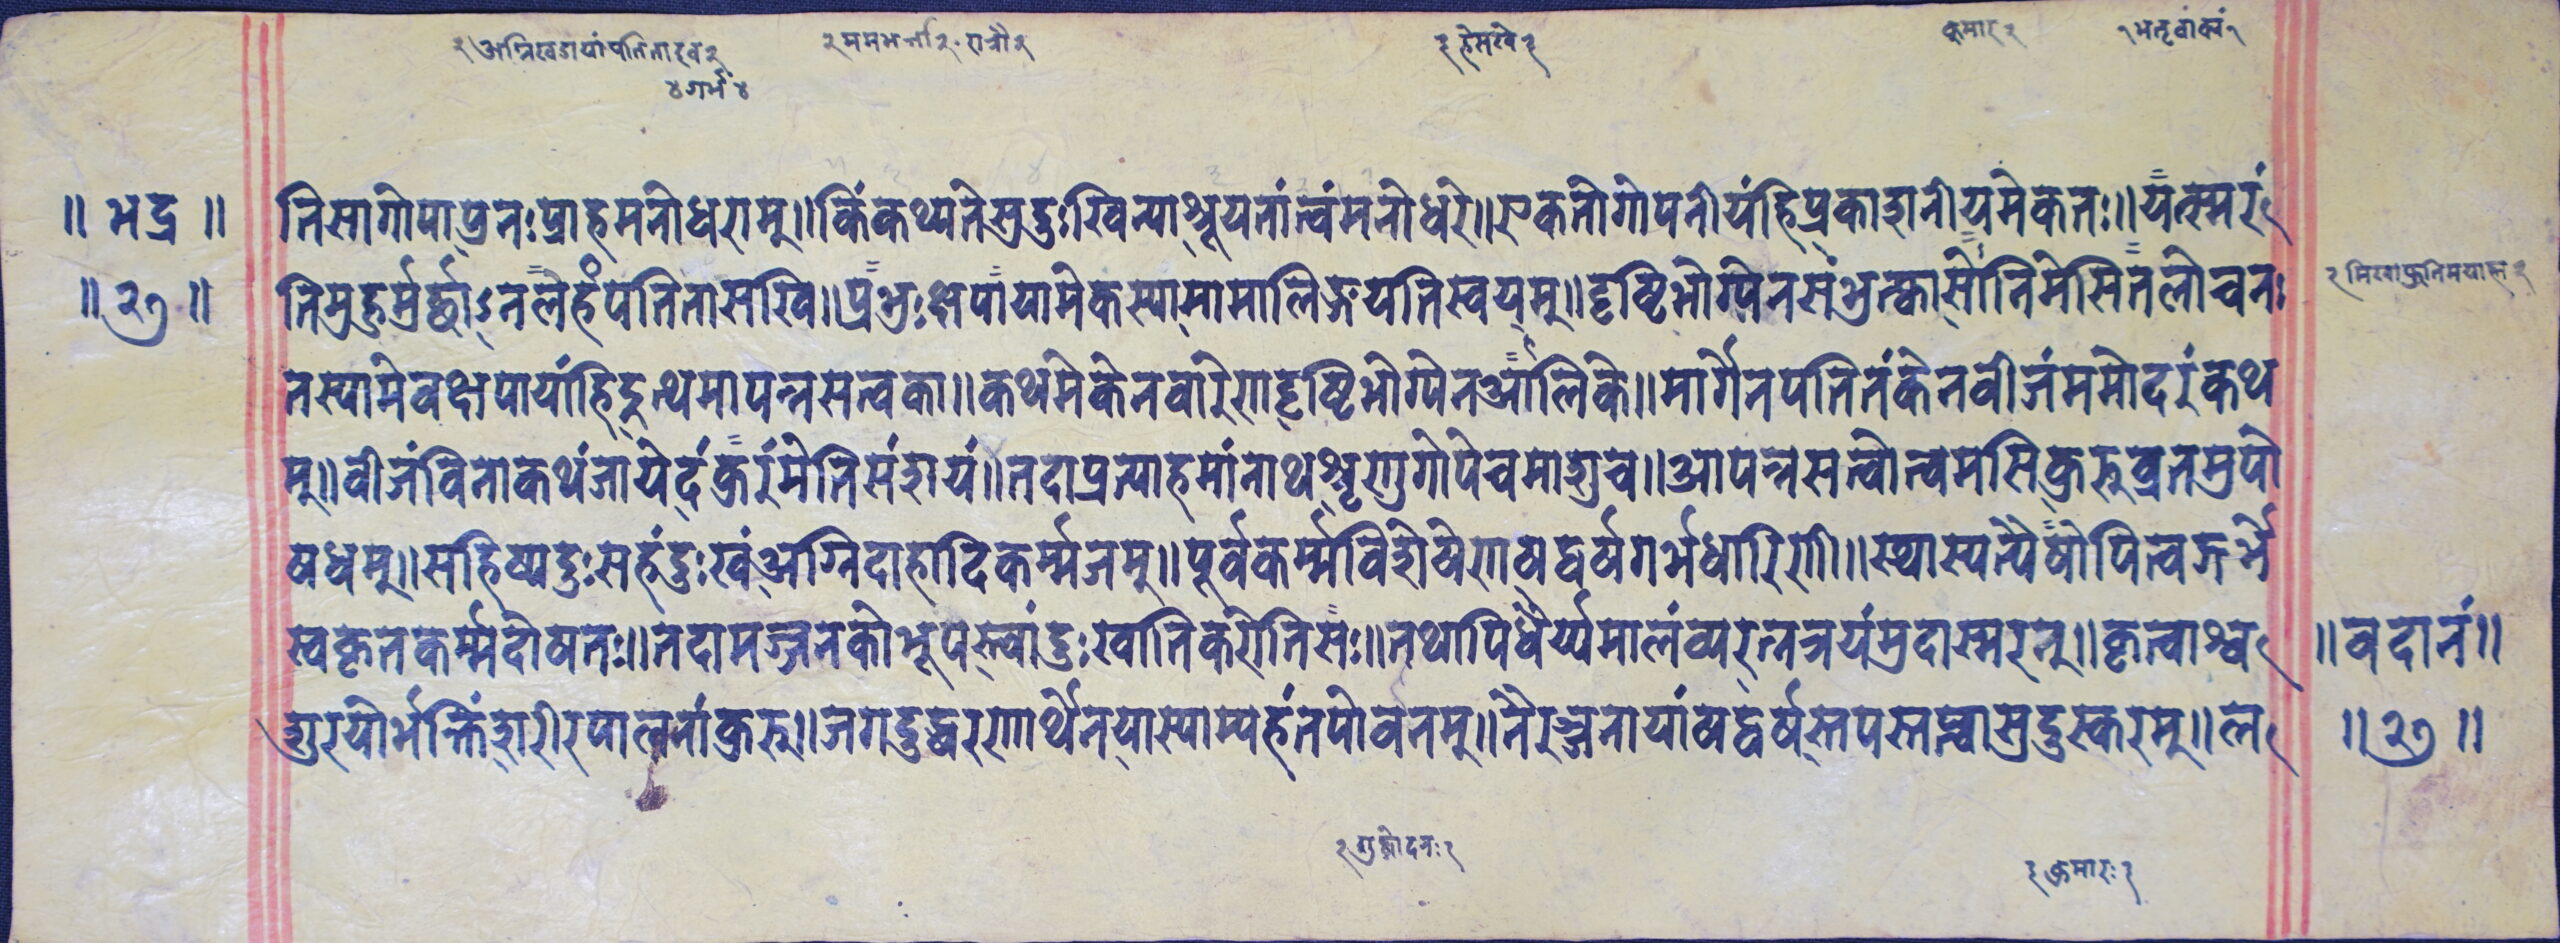 २अग्निखडायांपतितादव२ २ममभर्त्ता२ . रात्रौ२ २हेसखे२ कुमार२ १भर्तृवाक्यं१
४गर्भं४
॥ भद्र ॥ तिसागोपापुनःप्राहमनोधराम्॥किंकथ्यतेसुदुःखिन्याश्रूयतांत्वंमनोधरे॥एकतोगोपनीयंहिप्रकाशनीयमेकतः॥यत्स्मरं
॥२७॥ तिमुहुर्मुर्द्धाऽनलेहंपतितासखि॥प्रभुःक्षपायामेकस्यामामालिङ्गयतिस्वयम्॥दृष्टिभोग्येनसंभुत्कासोनिमेसितलोचनः
तस्यामेवक्षपायांहिदुत्थमापन्नसत्वका॥कथमेकेनवारेणदृष्टिभोग्येनआलिके॥मार्गेनपतितंकेनवीजंममोदरंकथ
म्॥वीजंविनाकथंजायेदंकुरंमेतिसंशयं॥तदाप्रत्याहमांनाथश्रृणुगोपेचमाशुच॥आपन्नसत्वोत्वमसिकुरुव्रतमुपो
षधम्॥सहिष्यदुःसहंदुःखंअग्निदाहादिकर्म्मजम्॥पूर्वकर्म्मविशेषेणषद्वर्षगर्भधारिणी॥स्थास्यत्यैषोपित्वङ्गर्भे
स्वकृतकर्म्मदोषतः॥तदामज्जनकोभूपस्त्वांदुःखानिकरोतिसः॥तथापिधैर्य्यमालंव्यरत्नत्रयंमुदास्मरत्॥कृत्वाश्व ॥वदानं॥
शुरयोर्भक्तिंशरीरपालनांकुरु॥जगदुद्धरणार्थेनयास्याम्यहंतपोवनम्॥नैरञ्जनायांषद्वर्षस्तपस्तप्त्वासुदुस्करम्॥ल ॥२७॥
२शुद्धोदनः२
२कुमारः२